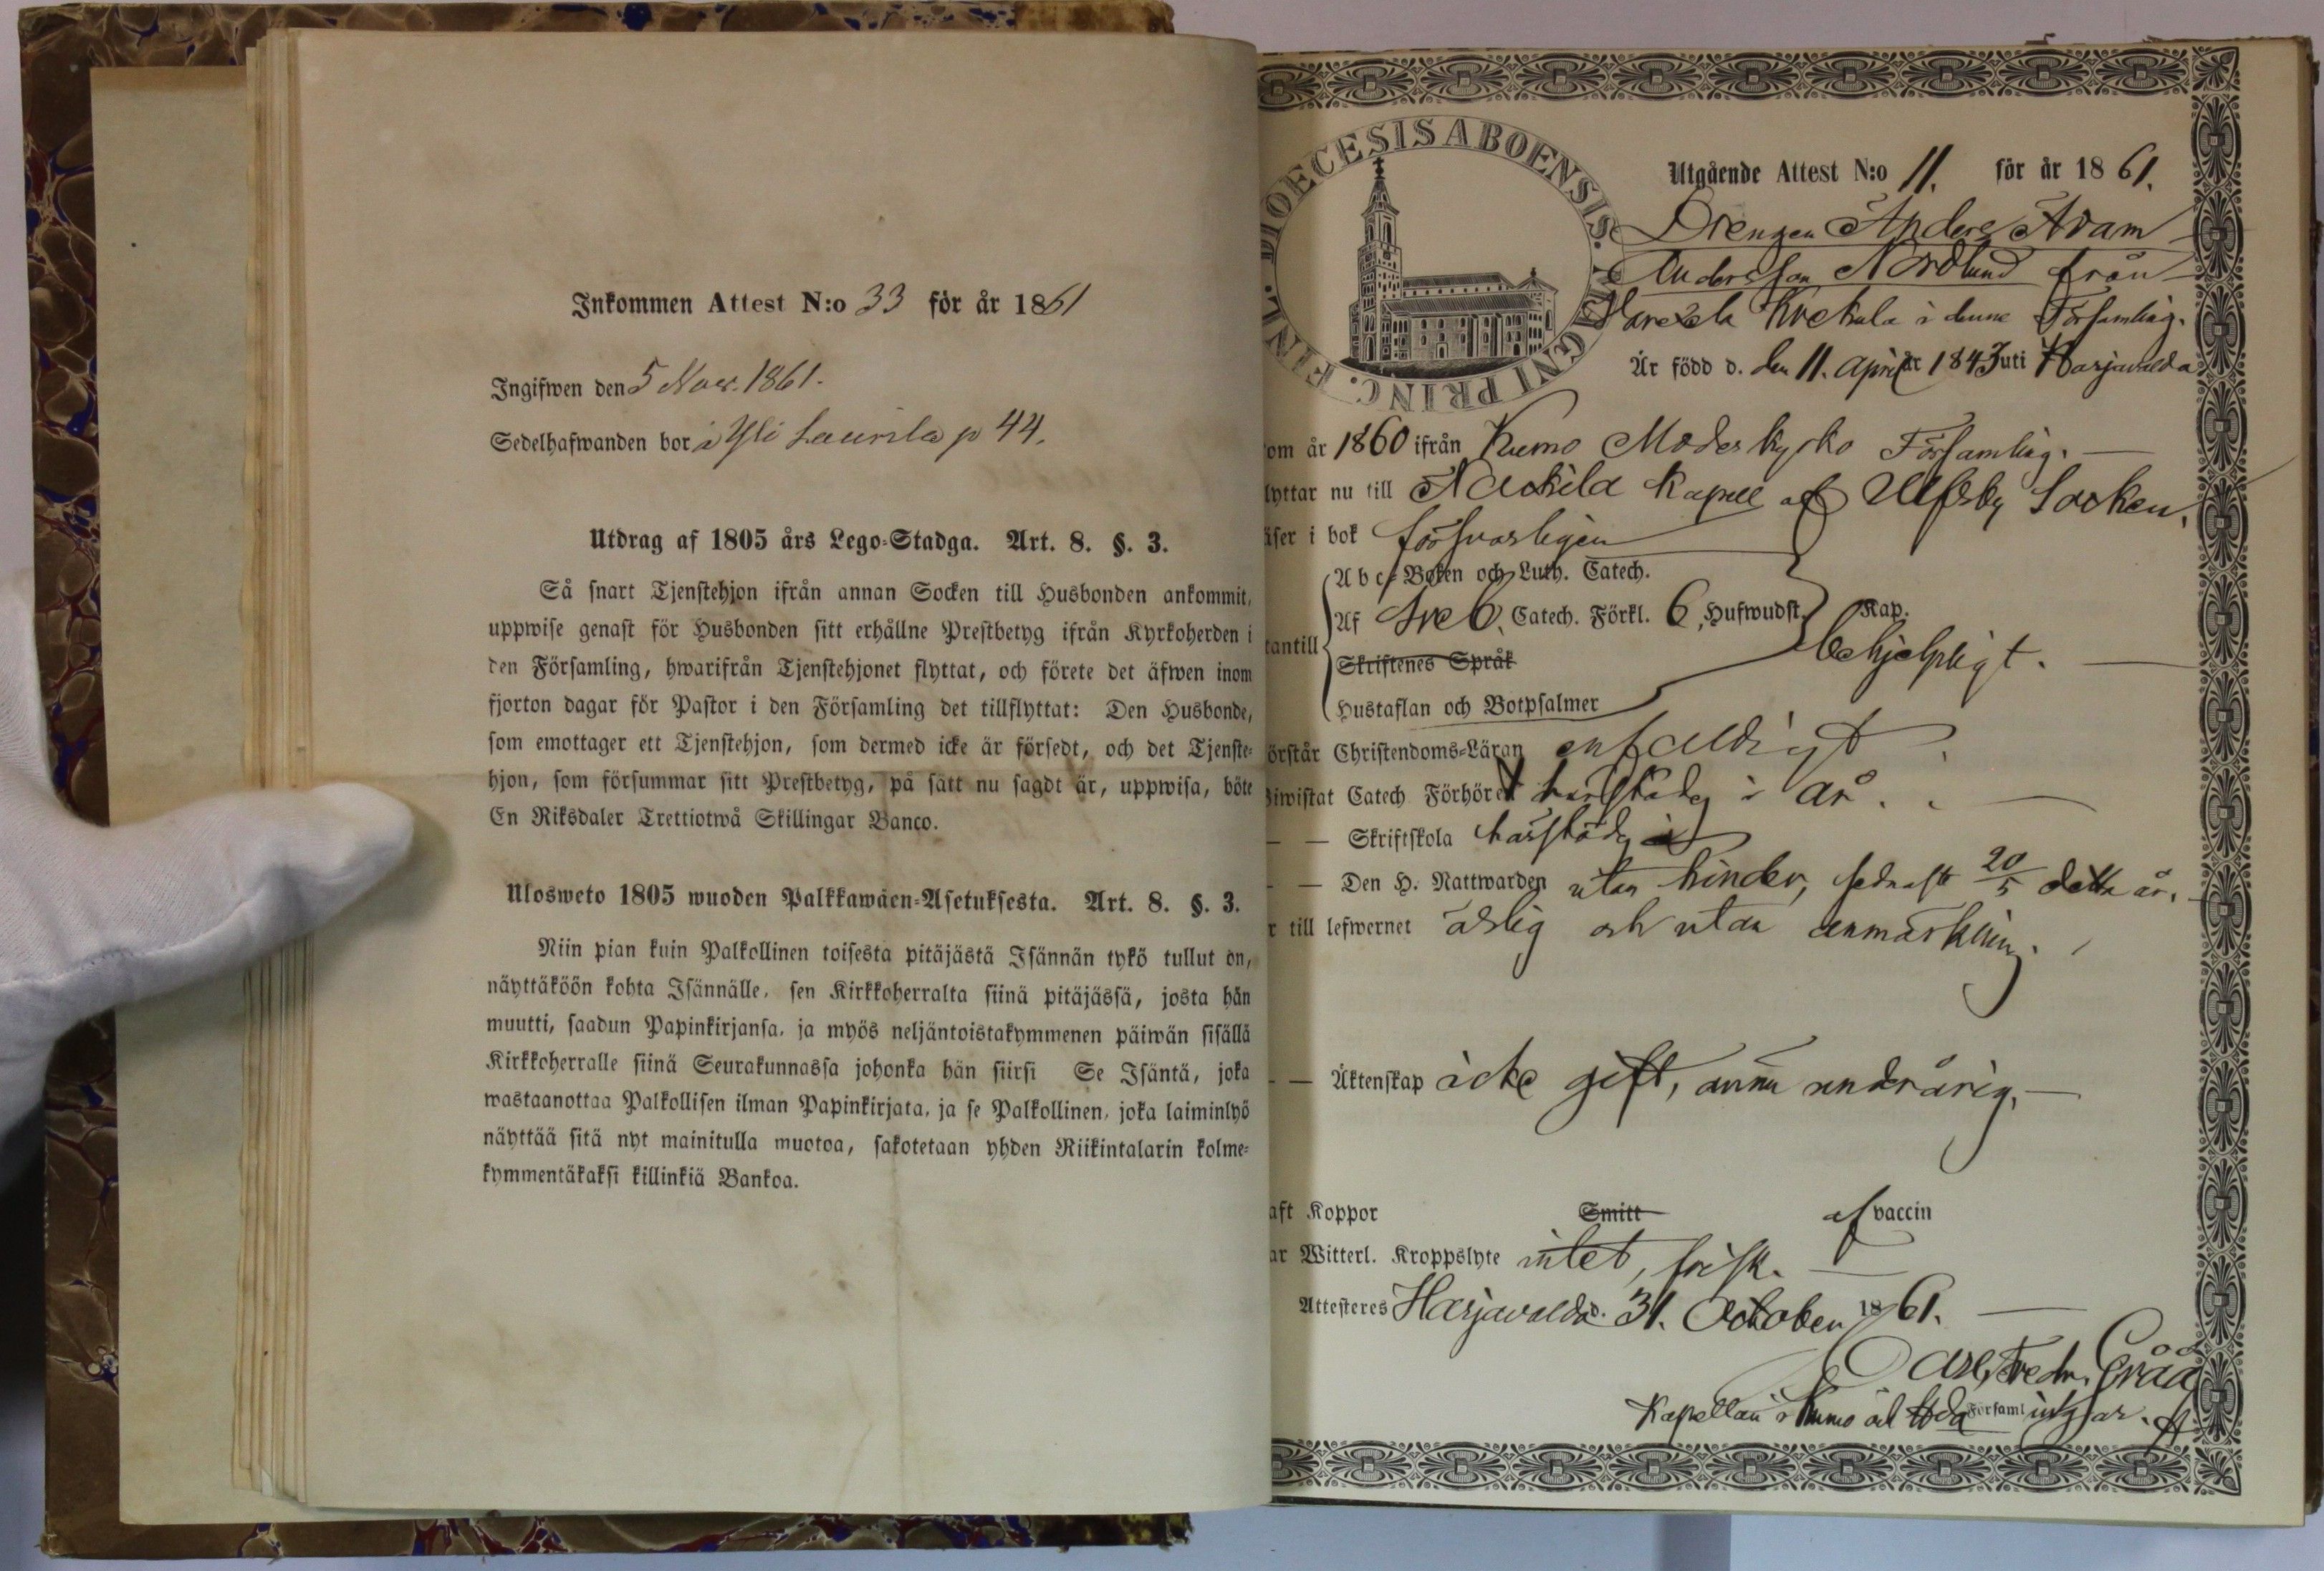 Inkommen Attest N:o 33 för år 1861
Ingifwen den 5 Nov. 1861.
Sedelhafwanden bor i Yli Laurila p 44.
Utdrag af 1805 års Lego-Stadga. Art. 8. §. 3.
Så snart Tjenstehjon ifrån annan Socken till Husbonden ankommit,
uppwise genast för Husbonden sitt erhållne Prestbetyg ifrån Kyrkoherden i
den Församling, hwarifrån Tjenstehjonet flyttat, och förete det äfwen inom
fjorton dagar för Pastor i den Församling det tillflyttat: Den Husbonde,
som emottager ett Tjenstehjon, som dermed icke är försedt, och det Tjenste-
hjon, som försummar sitt Prestbetyg, på sätt nu sagdt är, uppwisa, böte
En Riksdaler Trettiotwå Skillingar Banco.
Ulosweto 1805 wuoden Palkkawäen-Asetuksesta. Art. 8. §. 3.
Niin pian kuin Palkollinen toisesta pitäjästä Isännän tykö tullut on,
näyttäköön kohta Isännälle, sen Kirkkoherralta siinä pitäjässä, josta hän
muutti, saadun Papinkirjansa, ja myös neljäntoistakymmenen päiwän sisällä
Kirkkoherralle siinä Seurakunnassa johonka hän siirsi Se Isäntä, joka
wastaanottaa Palkollisen ilman Papinkirjata, ja se Palkollinen, joka laiminlyö
näyttää sitä nyt mainitulla muotoa, sakotetaan yhden Riikintalarin kolme-
kymmentäkaksi killinkiä Bankoa.
FINL. DIOECESIS ABOENSIS. MAGNI PRINC.
Utgående Attest N:o 11. för år 1861.
Drengen Anders Adam
Andersson Nordlund från
Krekula i denne Församling.
Är född d. den 11. April år 1843 uti Harjavalda
om år 1860 ifrån Kumo Moderkyrko Församling.
lyttar nu till Nackila Kapell af Ulfsby Socken.
äser i bok försvarligen
A b c-Boken och Luth. Catech.
Af Sveb. Catech. Förkl. 6, Hufwudst. Kap.
tantill behjelpligt.
Skriftenes Språk
Hustaflan och Botpsalmer
örstår Christendoms-Läran enfaldigt
Biwistat Catech Förhöret härstädes i år.
— — Skriftskola härstädes
— — Den H. Nattwarden utan hinder, sednast 20/5 detta år.
r till lefwernet ärlig och utan anmärkning.
— — Äktenskap icke gift, ännu underårig.
aft Koppor Smitt af vaccin
ar Witterl. Kroppslyte intet, frisk.
Attesteres Harjavalda d. 31. October 1861.
Carl Fredr. Gråå
Kapellan i Kumo och Församlingar.